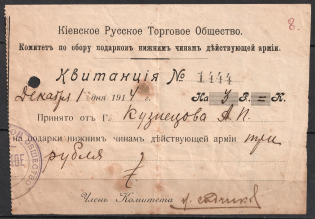 8.
Кіевское Русское Торговое Общество.
Комитетъ по сбору подарковъ нижнимъ чинамъ дѣйствующей арміи.
Квитанція № 1444
Декабря 1 дня 1914 г. На 3 Р. = К.
Принято отъ Г. Кузнецова А. П.
на подарки нижнимъ чинамъ дѣйствующей арміи три
рубля
Членъ Комитета